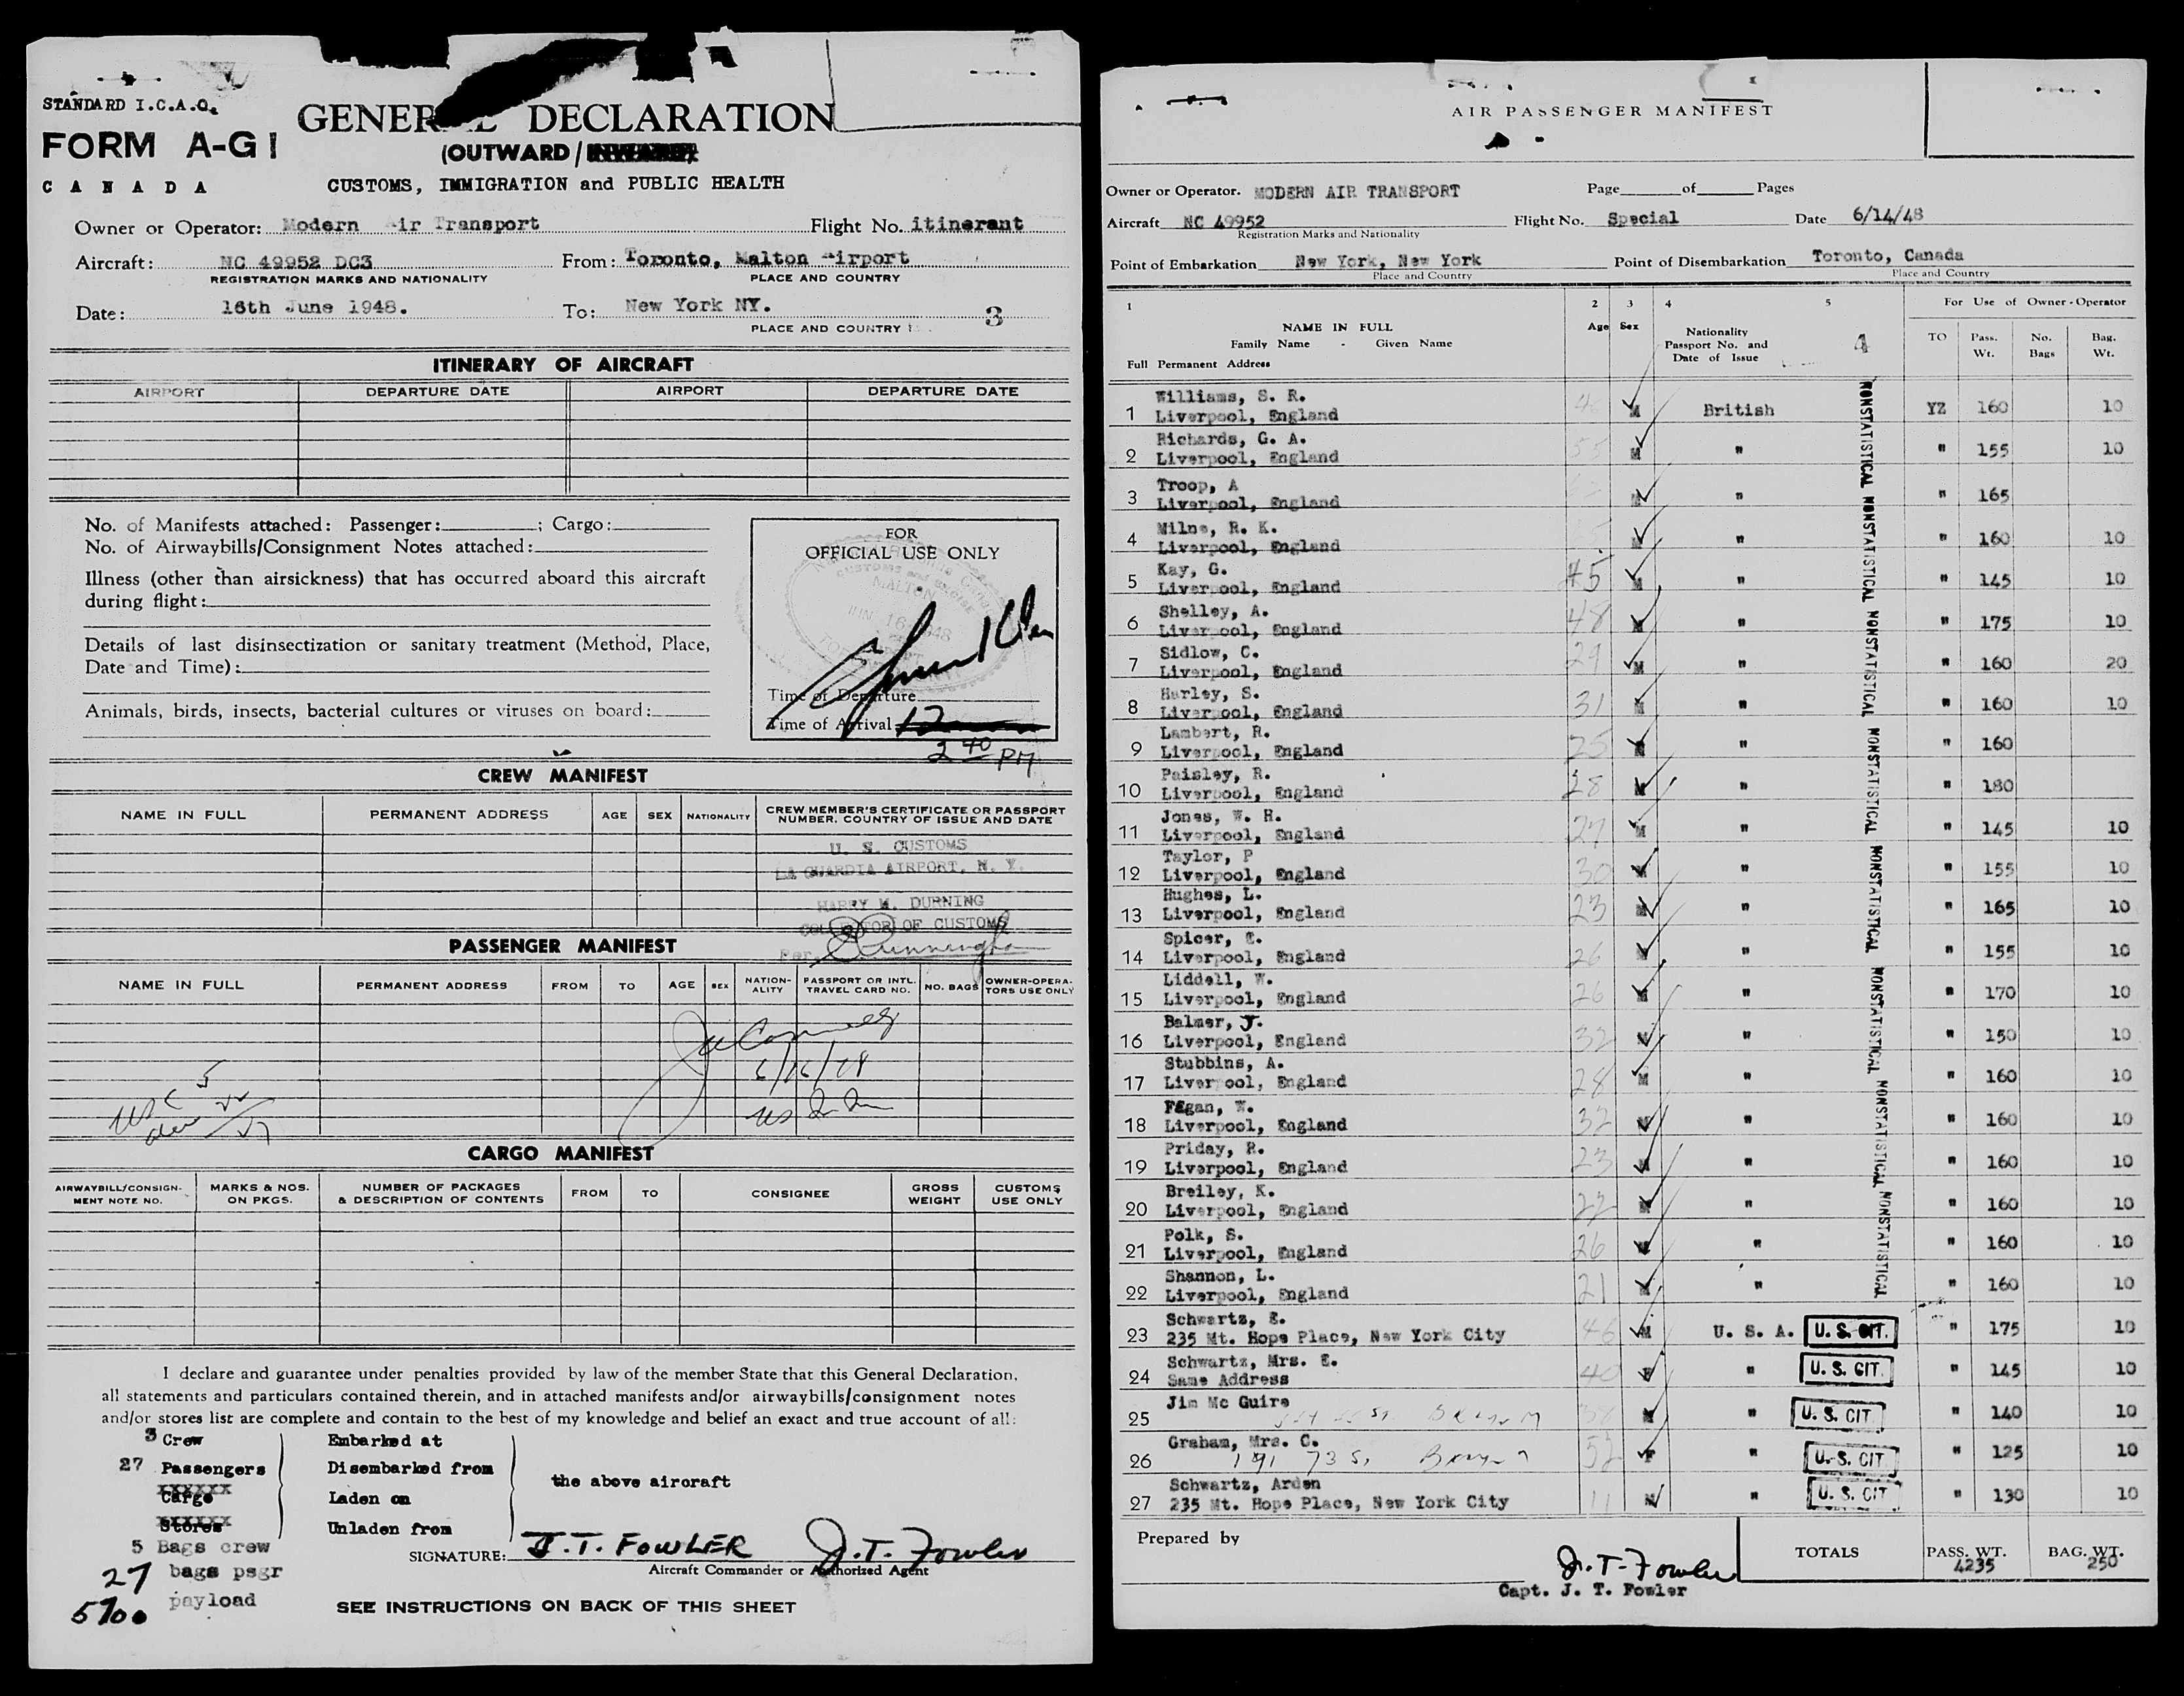 STANDARD I.C.A.O.
FORM A-G1
CANADA
GENERAL DECLARATION
(OUTWARD/
CUSTOMS, IMMIGRATION and PUBLIC HEALTH
Owner or Operator: Modern Air Transport Flight No. itinerant
Aircraft: NC 49952 DC3 From: Toronto, Malton Airport
REGISTRATION MARKS AND NATIONALITY PLACE AND COUNTRY
Date: 16th June 1948. To: New York NY. 3
PLACE AND COUNTRY
ITINERARY OF AIRCRAFT
AIRPORT DEPARTURE DATE AIRPORT DEPARTURE DATE
No. of Manifests attached: Passenger: ; Cargo:
No. of Airwaybills/Consignment Notes attached:
Illness (other than airsickness) that has occurred aboard this aircraft
during flight:
Details of last disinsectization or sanitary treatment (Method, Place,
Date and Time):
Animals, birds, insects, bacterial cultures or viruses on board:
FOR
OFFICIAL USE ONLY
CUSTOMS and EXCISE
MALTON
JUN 16 1948
Time of Departure
Time of Arrival 12
2 40 PM
CREW MANIFEST
NAME IN FULL PERMANENT ADDRESS AGE SEX NATIONALITY CREW MEMBER'S CERTIFICATE OR PASSPORT
NUMBER, COUNTRY OF ISSUE AND DATE
U. S. CUSTOMS
LA GUARDIA AIRPORT, N. Y.
HARRY M. DURNING
COLLECTOR OF CUSTOMS
Per
PASSENGER MANIFEST
NAME IN FULL PERMANENT ADDRESS FROM TO AGE SEX NATION-
ALITY PASSPORT OR INTL.
TRAVEL CARD NO. NO. BAGS OWNER-OPERA-
TORS USE ONLY
6/16/48
CARGO MANIFEST
AIRWAYBILL/CONSIGN-
MENT NOTE NO. MARKS & NOS.
ON PKGS. NUMBER OF PACKAGES
& DESCRIPTION OF CONTENTS FROM TO CONSIGNEE GROSS
WEIGHT CUSTOMS
USE ONLY
I declare and guarantee under penalties provided by law of the member State that this General Declaration,
all statements and particulars contained therein, and in attached manifests and/or airwaybills/consignment notes
and/or stores list are complete and contain to the best of my knowledge and belief an exact and true account of all:
3 Crew Embarked at
27 Passengers Disembarked from
the above aircraft
Cargo Laden on
Stores Unladen from
5 Bags crew
SIGNATURE: J.T. FOWLER J.T. Fowler
Aircraft Commander or Authorized Agent
27 bags psgr
5700 payload
SEE INSTRUCTIONS ON BACK OF THIS SHEET
AIR PASSENGER MANIFEST
Owner or Operator. MODERN AIR TRANSPORT Page of Pages
Aircraft NC 49952 Flight No. Special Date 6/14/48
Registration Marks and Nationality
Point of Embarkation New York, New York Point of Disembarkation Toronto, Canada
Place and Country Place and Country
1 2 3 4 5 For Use of Owner-Operator
NAME IN FULL Age Sex Nationality 4 TO Pass. No. Bag.
Family Name - Given Name Passport No. and Wt. Bags Wt.
Full Permanent Address Date of Issue
Williams, S. R.
1 Liverpool, England M British YZ 160 10
Richards, G. A.
2 Liverpool, England 55 M " " 155 10
Troop, A
3 Liverpool, England M " " 165
Milne, R. K.
4 Liverpool, England M " " 160 10
Kay, G.
5 Liverpool, England 45 M " " 145 10
Shelley, A.
6 Liverpool, England 48 M " " 175 10
Sidlow, C.
7 Liverpool, England 29 M " " 160 20
Harley, S.
8 Liverpool, England 31 M " " 160 10
Lambert, R.
9 Liverpool, England 25 M " " 160
Paisley, R.
10 Liverpool, England 28 M " " 180
Jones, W. H.
11 Liverpool, England 27 M " " 145 10
Taylor, P
12 Liverpool, England 30 M " " 155 10
Hughes, L.
13 Liverpool, England 23 M " " 165 10
Spicer, E.
14 Liverpool, England 26 M " " 155 10
Liddell, W.
15 Liverpool, England 26 M " " 170 10
Balmer, J.
16 Liverpool, England 32 M " " 150 10
Stubbins, A.
17 Liverpool, England 28 M " " 160 10
Fagan, W.
18 Liverpool, England 32 M " " 160 10
Priday, R.
19 Liverpool, England 23 M " " 160 10
Breiley, K.
20 Liverpool, England 22 M " " 160 10
Polk, S.
21 Liverpool, England 26 M " " 160 10
Shannon, L.
22 Liverpool, England 21 M " " 160 10
NONSTATISTICAL NONSTATISTICAL NONSTATISTICAL NONSTATISTICAL NONSTATISTICAL NONSTATISTICAL NONSTATISTICAL NONSTATISTICAL
Schwartz, E.
23 235 Mt. Hope Place, New York City 46 M U. S. A. U. S. CIT. " 175 10
Schwartz, Mrs. E.
24 Same Address 40 F " U. S. CIT. " 145 10
Jim Mc Guire
25 38 M " U. S. CIT. " 140 10
Graham, Mrs. C.
26 191 73 St 52 F " U. S. CIT " 125 10
Schwartz, Arden
27 235 Mt. Hope Place, New York City 11 M " U. S. CIT " 130 10
Prepared by
TOTALS PASS. WT. BAG. WT.
J.T. Fowler 4235 250
Capt. J. T. Fowler